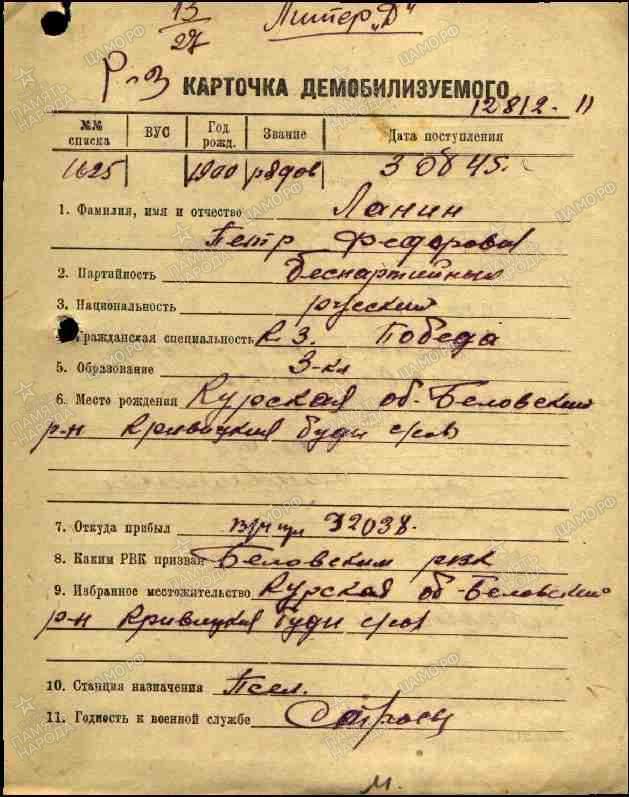 13
27
Литер „Д"
Р-3
КАРТОЧКА ДЕМОБИЛИЗУЕМОГО
12812-11
№№ списка ВУС Год рожд. Звание Дата поступления
1625 1900 рядов 3 08 45.
1. Фамилия, имя и отчество Ланин
Петр Федоров
2. Партийность беспартийный
3. Национальность русский
4. Гражданская специальность К.З. Победа
5. Образование 3-кл
6. Место рождения Курская об-Беловский
р-н Кривицкия Буди с/сов
7. Откуда прибыл 32038.
8. Каким РВК призван Беловским рвк
9. Избранное местожительство Курская об-Беловский
р-н Кривицкия Буди с/сов
10. Станция назначения Псел.
11. Годность к военной службе Строев
М.
ПАМЯТЬ НАРОДА
ЦАМО.РФ